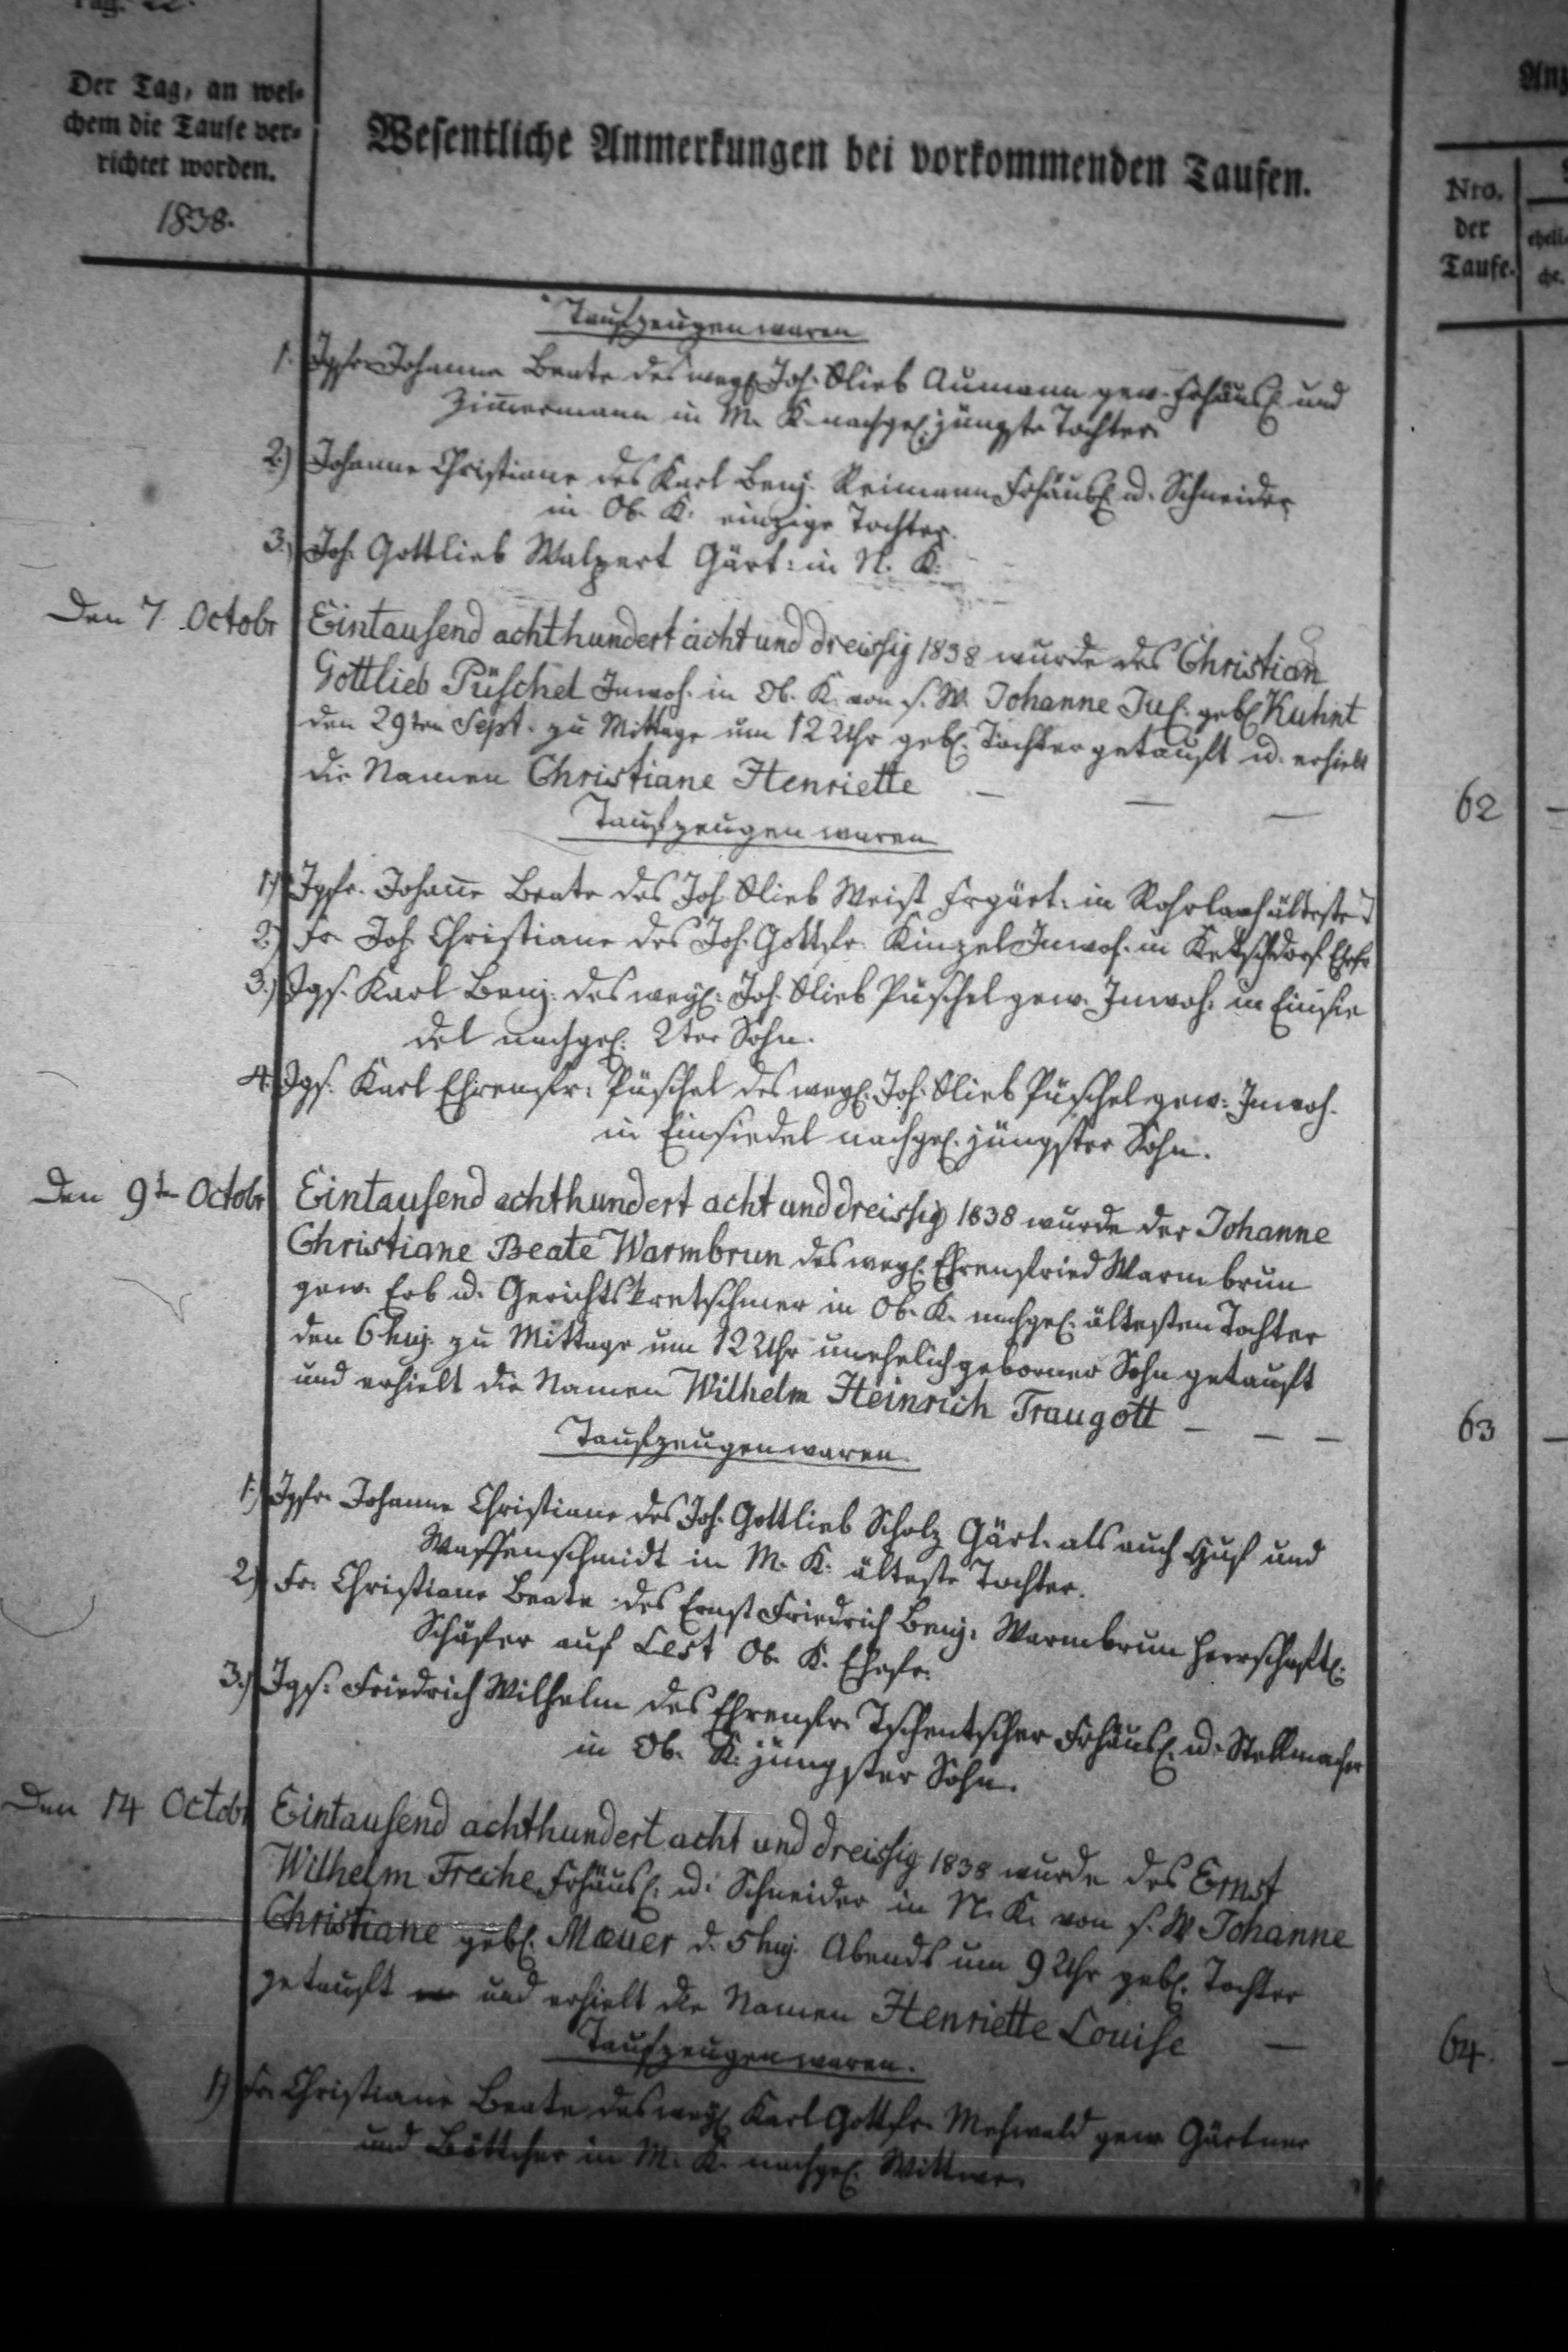 Pag. 22.
Der Tag, an wel-
chem die Taufe ver-
richtet worden.
1838.
Wesentliche Anmerkungen bei vorkommenden Taufen.
Nro.
der
Taufe.
Taufzeugen waren
1. Igfr. Johanne Beate des weyl. Joh. Glieb Aumann gew. Frhäusl. und
Zimermann in M. K. nachgel. jüngste Tochter.
2.) Johanne Christiane des Karl Benj. Reimann Frhäusl. u. Schneider
in Ob. K. einzige Tochter.
3.) Joh. Gottlieb Walpert Gärt: in N. K.
Den 7 Octobr Eintausend achthundert acht und dreissig 1838 wurde des Christian
Gottlieb Püschel Inwoh. in Ob. K. von s. W. Johanne Jul. gebl. Kuhnt
den 29ten Sept. zu Mittage um 12 Uhr gebl. Tochter getauft u. erhielt
die Namen Christiane Henriette — — —
62
Taufzeugen waren
1.) Igfr. Johane Beate des Joh. Glieb Weist Frgärt: in Rohrlach älteste T
2.) Fr. Joh. Christiane des Joh. Gottfr. Kinzel Inwoh. in Ketschdorf Ehefr
3.) Jgs. Karl Benj. des weyl: Joh. Glieb Püschel gew. Inwoh. in Einsie
del nachgel. 2ter Sohn.
4. Jgs. Karl Ehrenfr: Püschel des weyl. Joh. Glieb Püschel gew: Inwoh.
in Einsiedel nachgel. jüngster Sohn.
Den 9ten Octobr Eintausend achthundert acht und dreissig 1838 wurde der Johanne
Christiane Beate Warmbrun des weyl. Ehrenfried Warmbrun
gew. Erb u. Gerichtskretschmer in Ob. K. nachgel. ältesten Tochter
den 6 huj. zu Mittage um 12 Uhr unehelich geborner Sohn getauft
und erhielt die Namen Wilhelm Heinrich Traugott — — —
63
Taufzeugen waren
1.) Igfr. Johanne Christiane des Joh. Gottlieb Scholz Gärt. als auch Huf und
Waffenschmidt in M. K. älteste Tochter.
2.) Fr. Christiane Beate des Ernst Friedrich Benj. Warmbrun herrschaftl.
Schäfer auf Lest Ob. K. Ehefr.
3.) Jgs. Friedrich Wilhelm des Ehrenfr. Tschentscher Frhäusl. u. Stellmacher
in Ob. K. jüngster Sohn.
Den 14 Octobr Eintausend achthundert acht und dreissig 1838 wurde des Ernst
Wilhelm Freche Frhäusl. u. Schneider in N. K. von s. W. Johanne
Christiane gebl. Mauer d. 5 huj. Abends um 9 Uhr gebl. Tochter
getauft und erhielt die Namen Henriette Louise —
64.
Taufzeugen waren.
1) Fr. Christiane Beate des weyl Karl Gottfr. Mehwald gew. Gärtner
und Böttcher in M. K. nachgel. Wittwe.